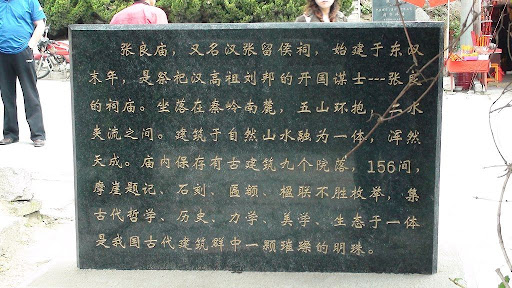 张良庙，又名汉张留侯祠，始建于东汉
末年，是祭祀汉高祖刘邦的开国谋士---张良
的祠庙。坐落在秦岭南麓，五山环抱，二水
夹流之间。建筑于自然山水融为一体，浑然
天成。庙内保存有古建筑九个院落，156间，
摩崖题记、石刻、匾额、楹联不胜枚举，集
古代哲学、历史、力学、美学、生态于一体
是我国古代建筑群中一颗璀璨的明珠。